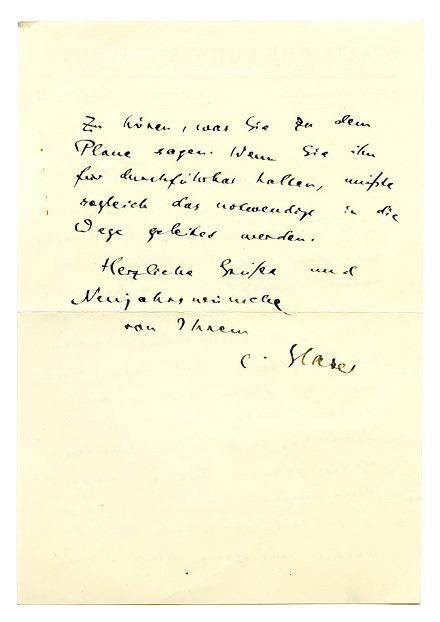 Zu hören, was Sie zu dem
Plane sagen. Wenn Sie ihn
für durchführbar halten, müsste
sogleich das notwendige in die
Wege geleitet werden.
Herzliche Grüße und
Neujahrswünsche
von Ihrem
C. Glaser